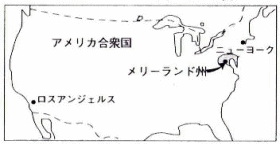 アメリカ合衆国
ニューヨーク
メリーランド州
ロスアンジェルス